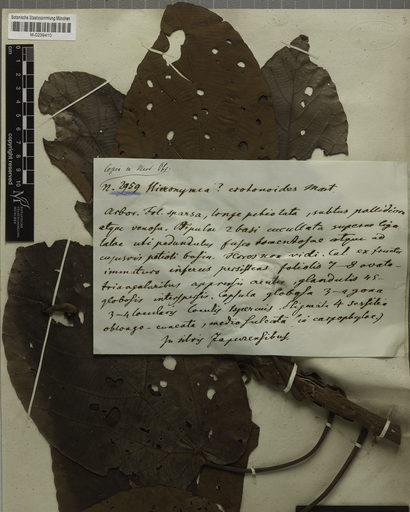 Botanische Staatssammlung München
M-0239410
copyright reserved
Botanische Staatssammlung München
N. 2959 Hieronymea? crotonoides Mart
Arbor. Fol. sparsa, longe petiolata, subtus pallidiora
atque venosa. Stipulae 2 basi cucullata superne liga
latae ubi pedunculus fusco tomentosae atque ad
cujusvis petioli basin. Flores non vidi. Cal. ex fructu
immaturo inferus persistens foliolis 7-8 ovato-
triangularibus appressis acutis, glandulis
globosis interspersis. Capsula globosa 3-4gona
3-4locularis Stigmat. 4 sessilia
oblongo-cuneata, medio (in caryophyllac.)
In silvis Japurensibus